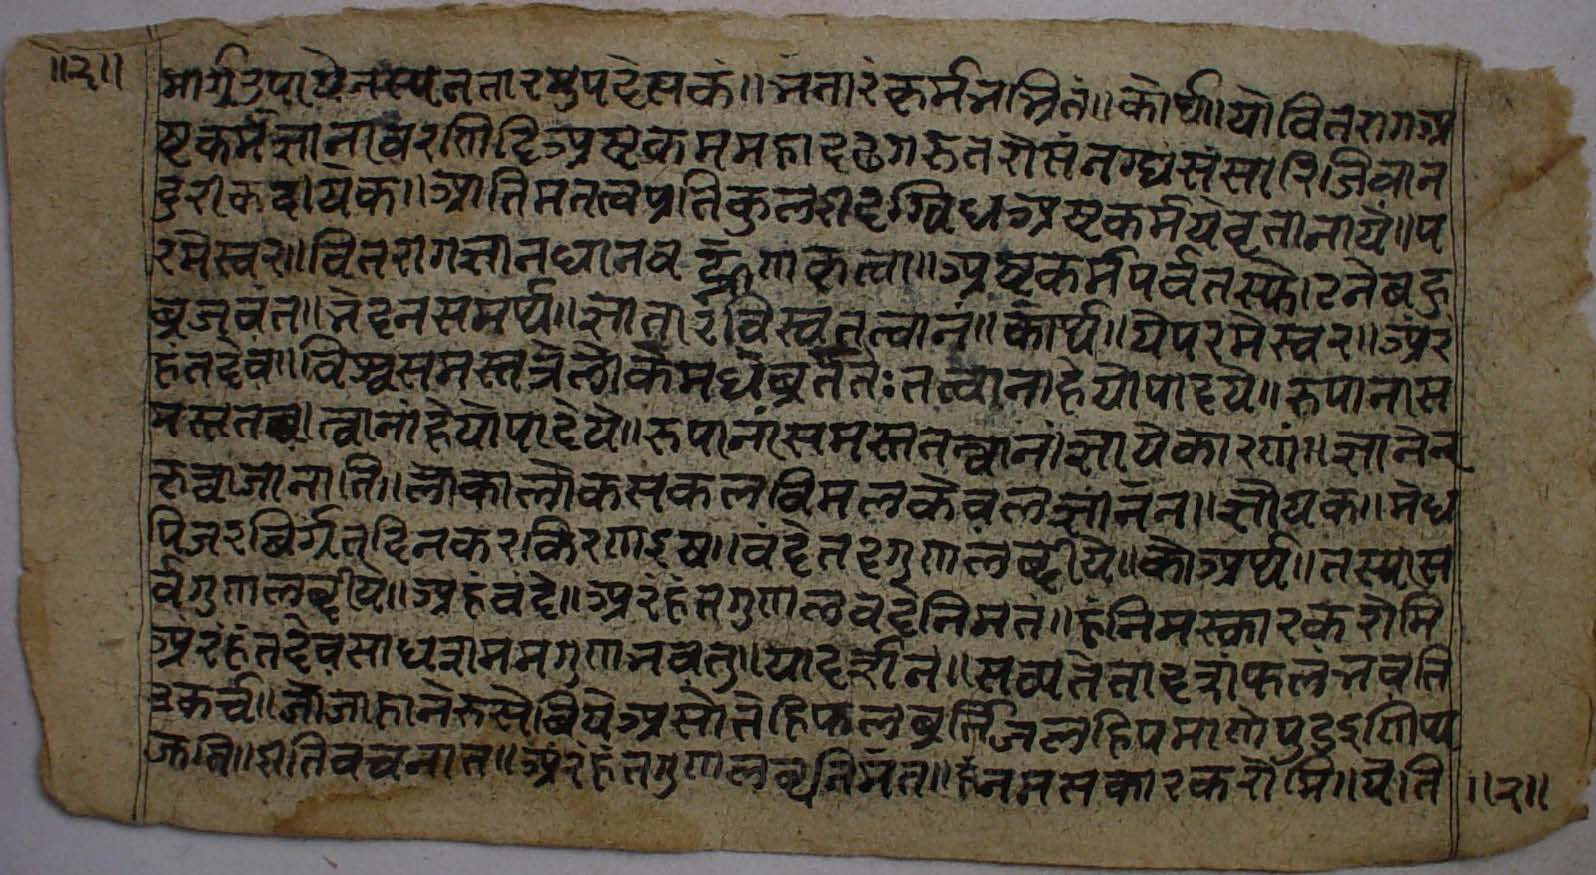 ॥२॥ मार्गउपायेनस्पनतारमुपदेस्यकं॥भेतारंकर्मभूभ्रितं॥कोर्घ॥योवितरागअ
ष्टकर्मज्ञानावरणिदिअष्टकममहादृढगरुतरोसंनग्घसंसारिजिवान
दुरीकदायक॥आतिमतत्वप्रतिकुलशीदृग्विधअष्टकर्मयेवृतानाये॥प
रमेस्वर॥वितरागज्ञानध्यानव कृत्वा॥अष्टकर्मपर्वतस्फोटनेबहु
ब्रजवंत॥भेदनसमर्प्य॥ज्ञातारंविस्वतत्वानं॥कोर्घ॥येपरमेस्वर॥अंरं
हंतदेव॥विश्वसमस्तत्रैलोकेमधेब्रर्ततेःतत्वानाहेयोपादये॥रुपानास
मस्ततत्वानांहेयोपादेये॥रुपानांसमस्ततत्वानं।ज्ञायेकारणं॥ज्ञानेन
कृत्वाजोनाति॥लोकालोकसकलविमलकेवलज्ञानेन॥ज्ञेयक॥मेघ
पिजरबिर्ग्रतदिनकरकिरणाइष॥वंदेतद्गुणालब्द्धीये॥कोअर्घ॥तस्यस
र्वगुणालब्द्धीये॥अहंवदे॥अरंहंतगुणालवेदेनिमतं॥हंनिमस्कारकरोमि
अरंहंतदेवसाघरामेमगुणाभवतु॥यादर्शेन॥सेव्यतेतादृशफलंभवति
उकर्च॥जोजाहानेरुसेबियेअसोतेहिफलब्रर्तिजलहिपमाणेपुटुइणिप्प
ज्जति॥इतिवचनात॥अंरंहंतगुणालब्धनिमंत॥हंनमसकारकरोमि॥येति ॥२॥